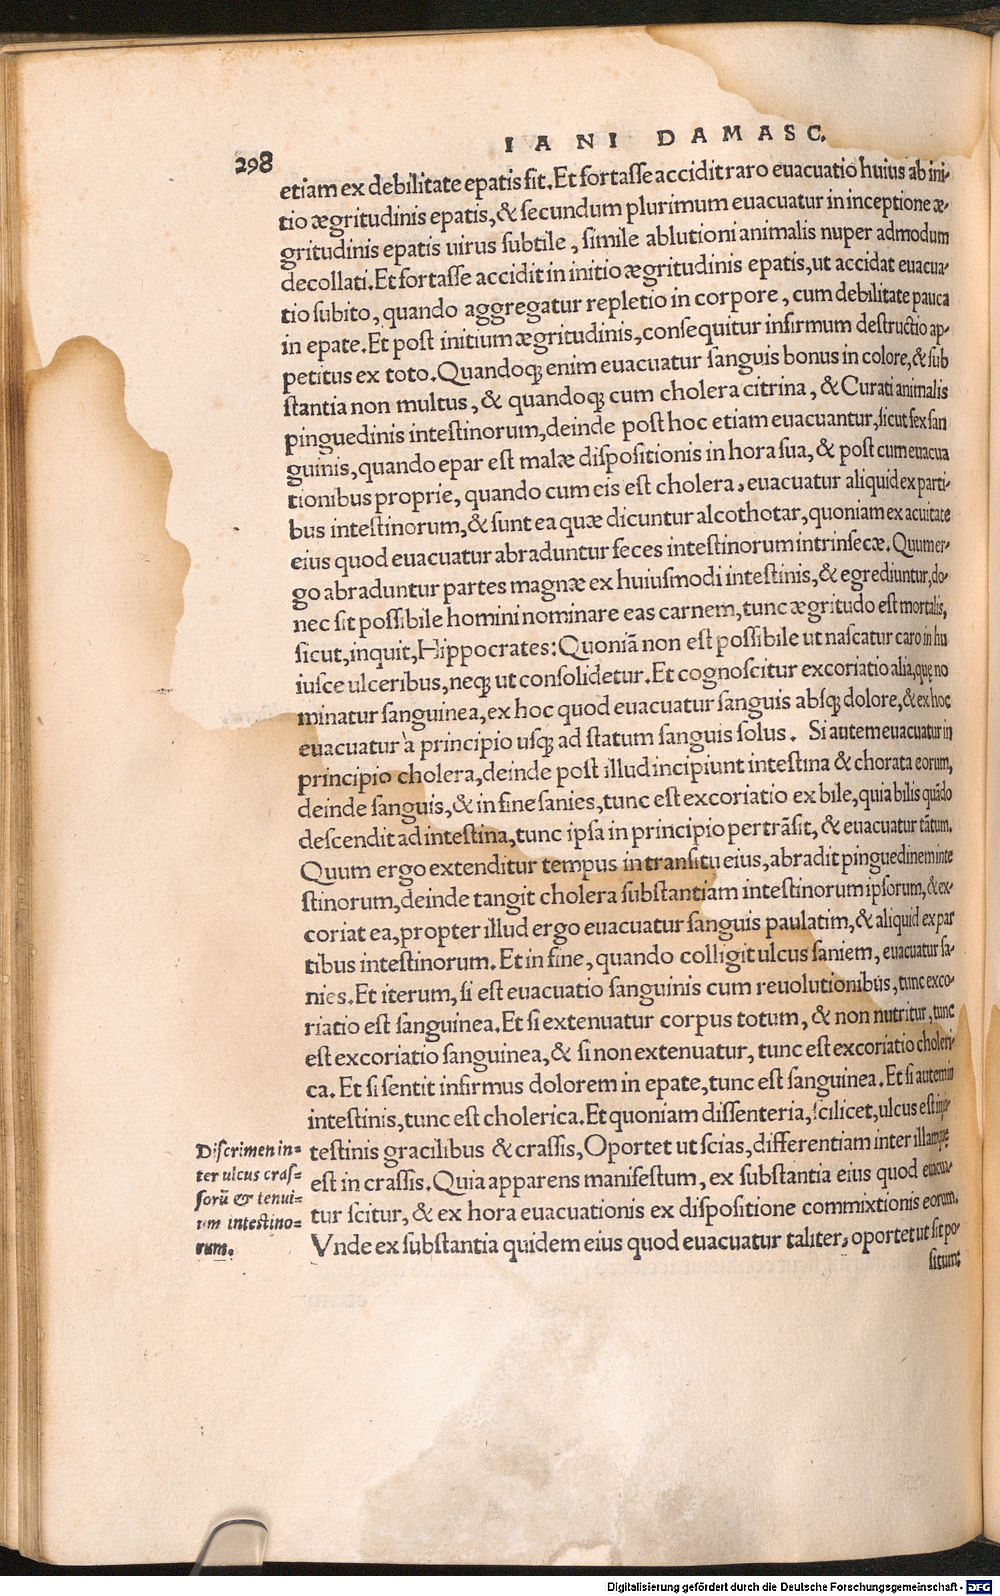 IANI DAMASC.
298
etiam ex debilitate epatis fit. Et fortasse accidit raro euacuatio huius ab ini-
tio ægritudinis epatis, & secundum plurimum euacuatur in inceptione æ-
gritudinis epatis uirus subtile, simile ablutioni animalis nuper admodum
decollati. Et fortasse accidit in initio ægritudinis epatis, ut accidat euacua-
tio subito, quando aggregatur repletio in corpore, cum debilitate pauca
in epate. Et post initium ægritudinis, consequitur infirmum destructio ap-
petitus ex toto. Quandoq; enim euacuatur sanguis bonus in colore, & sub
stantia non multus, & quandoq; cum cholera citrina, & Curati animalis
pinguedinis intestinorum, deinde post hoc etiam euacuantur, sicut fex san
guinis, quando epar est malæ dispositionis in hora sua, & post cum euacua
tionibus proprie, quando cum eis est cholera, euacuatur aliquid ex parti-
bus intestinorum, & sunt ea quæ dicuntur alcothotar, quoniam ex acuitate
eius quod euacuatur abraduntur feces intestinorum intrinsecæ. Quum er-
go abraduntur partes magnæ ex huiusmodi intestinis, & egrediuntur, do-
nec sit possibile homini nominare eas carnem, tunc ægritudo est mortalis,
sicut, inquit, Hippocrates: Quoniā non est possibile ut nascatur caro in hu
iusce ulceribus, neq; ut consolidetur. Et cognoscitur excoriatio alia, quę no
minatur sanguinea, ex hoc quod euacuatur sanguis absq; dolore, & ex hoc
euacuatur à principio usq; ad statum sanguis solus. Si autem euacuatur in
principio cholera, deinde post illud incipiunt intestina & chorata eorum,
deinde sanguis, & in fine sanies, tunc est excoriatio ex bile, quia bilis quādo
descendit ad intestina, tunc ipsa in principio pertrāsit, & euacuatur tātum.
Quum ergo extenditur tempus in transitu eius, abradit pinguedinem inte
stinorum, deinde tangit cholera substantiam intestinorum ipsorum, & ex-
coriat ea, propter illud ergo euacuatur sanguis paulatim, & aliquid ex par
tibus intestinorum. Et in fine, quando colligit ulcus saniem, euacuatur sa-
nies. Et iterum, si est euacuatio sanguinis cum reuolutionibus, tunc exco-
riatio est sanguinea. Et si extenuatur corpus totum, & non nutritur, tunc
est excoriatio sanguinea, & si non extenuatur, tunc est excoriatio choleri-
ca. Et si sentit infirmus dolorem in epate, tunc est sanguinea. Et si autem in
intestinis, tunc est cholerica. Et quoniam dissenteria, scilicet, ulcus est in in-
testinis gracilibus & crassis, Oportet ut scias, differentiam inter illamque
est in crassis. Quia apparens manifestum, ex substantia eius quod euacua-
tur scitur, & ex hora euacuationis ex dispositione commixtionis eorum.
Vnde ex substantia quidem eius quod euacuatur taliter, oportet ut sit po-
situm:
Discrimen in=
ter ulcus cras=
sorū & tenui=
um intestino=
rum.
Digitalisierung gefördert durch die Deutsche Forschungsgemeinschaft - DFG